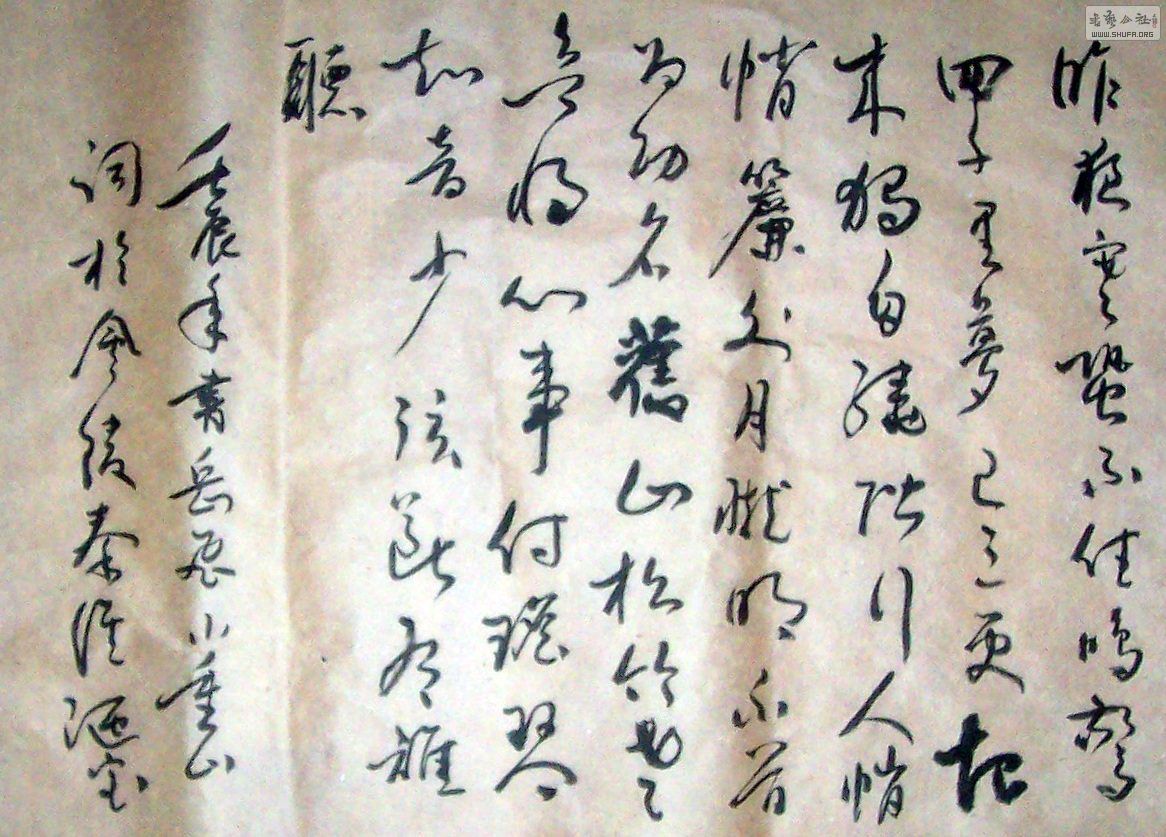 昨夜寒蛩不住鳴驚
回千里夢已三更起
来獨自繞階行人悄
悄簾外月朧明白首
为功名舊山松竹老
欲将心事付瑶琴
知音少弦斷有誰
聽
壬辰年書岳飛小重山
詞於金陵秦淮
書藝公社
WWW.SHUFA.ORG